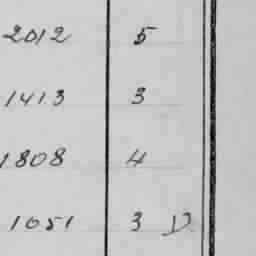 2012 5
1413 3
1808 4
1051 3 V